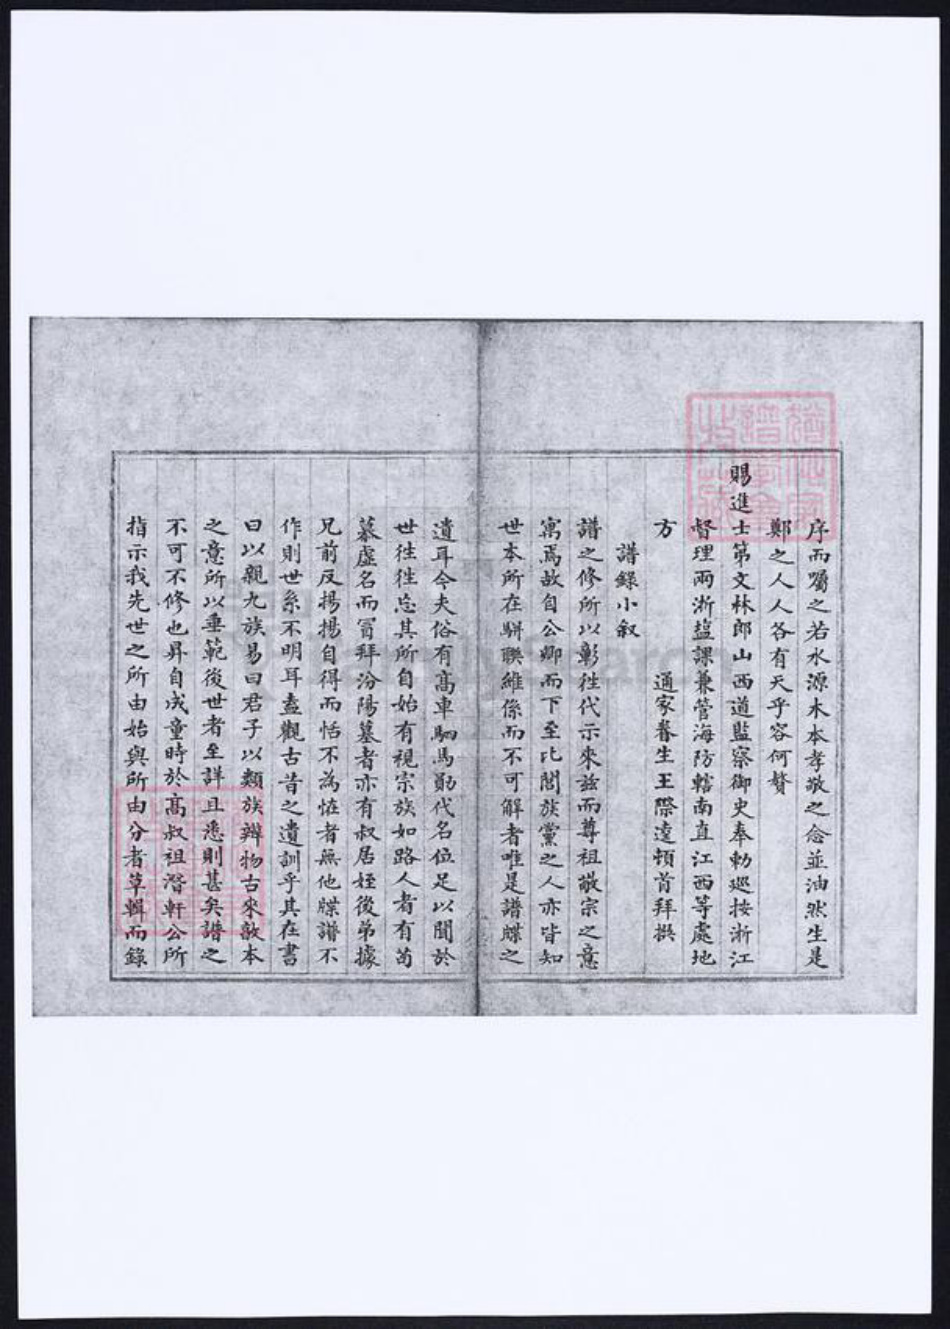 序而囑之若水源木本孝敬之念並油然生是
鄭之人人各有天乎容何贅
賜進士第文林郎山西道監察御史奉勅巡按浙江
督理兩浙塩課兼管海防轄南直江西等處地
方　通家眷生王際逵頓首拜撰
譜錄小叙
譜之修所以彰徃代示來兹而尊祖敬宗之意
寓焉故自公卿而下至比閭族黨之人亦皆知
世本所在駢聯維係而不可解者唯是譜牒之
遺耳今夫俗有高車駟馬勛代名位足以聞於
世徃徃忘其所自始有視宗族如路人者有苟
慕虛名而冒拜汾陽墓者亦有叔居姪後弟據
兄前反揚揚自得而恬不為恠者無他牒譜不
作則世系不明耳盍觀古昔之遺訓乎其在書
曰以親九族易曰君子以類族辨物古來敦本
之意所以垂範後世者至詳且悉則甚矣譜之
不可不修也昇自成童時於高叔祖潛軒公所
指示我先世之所由始與所由分者草輯而錄